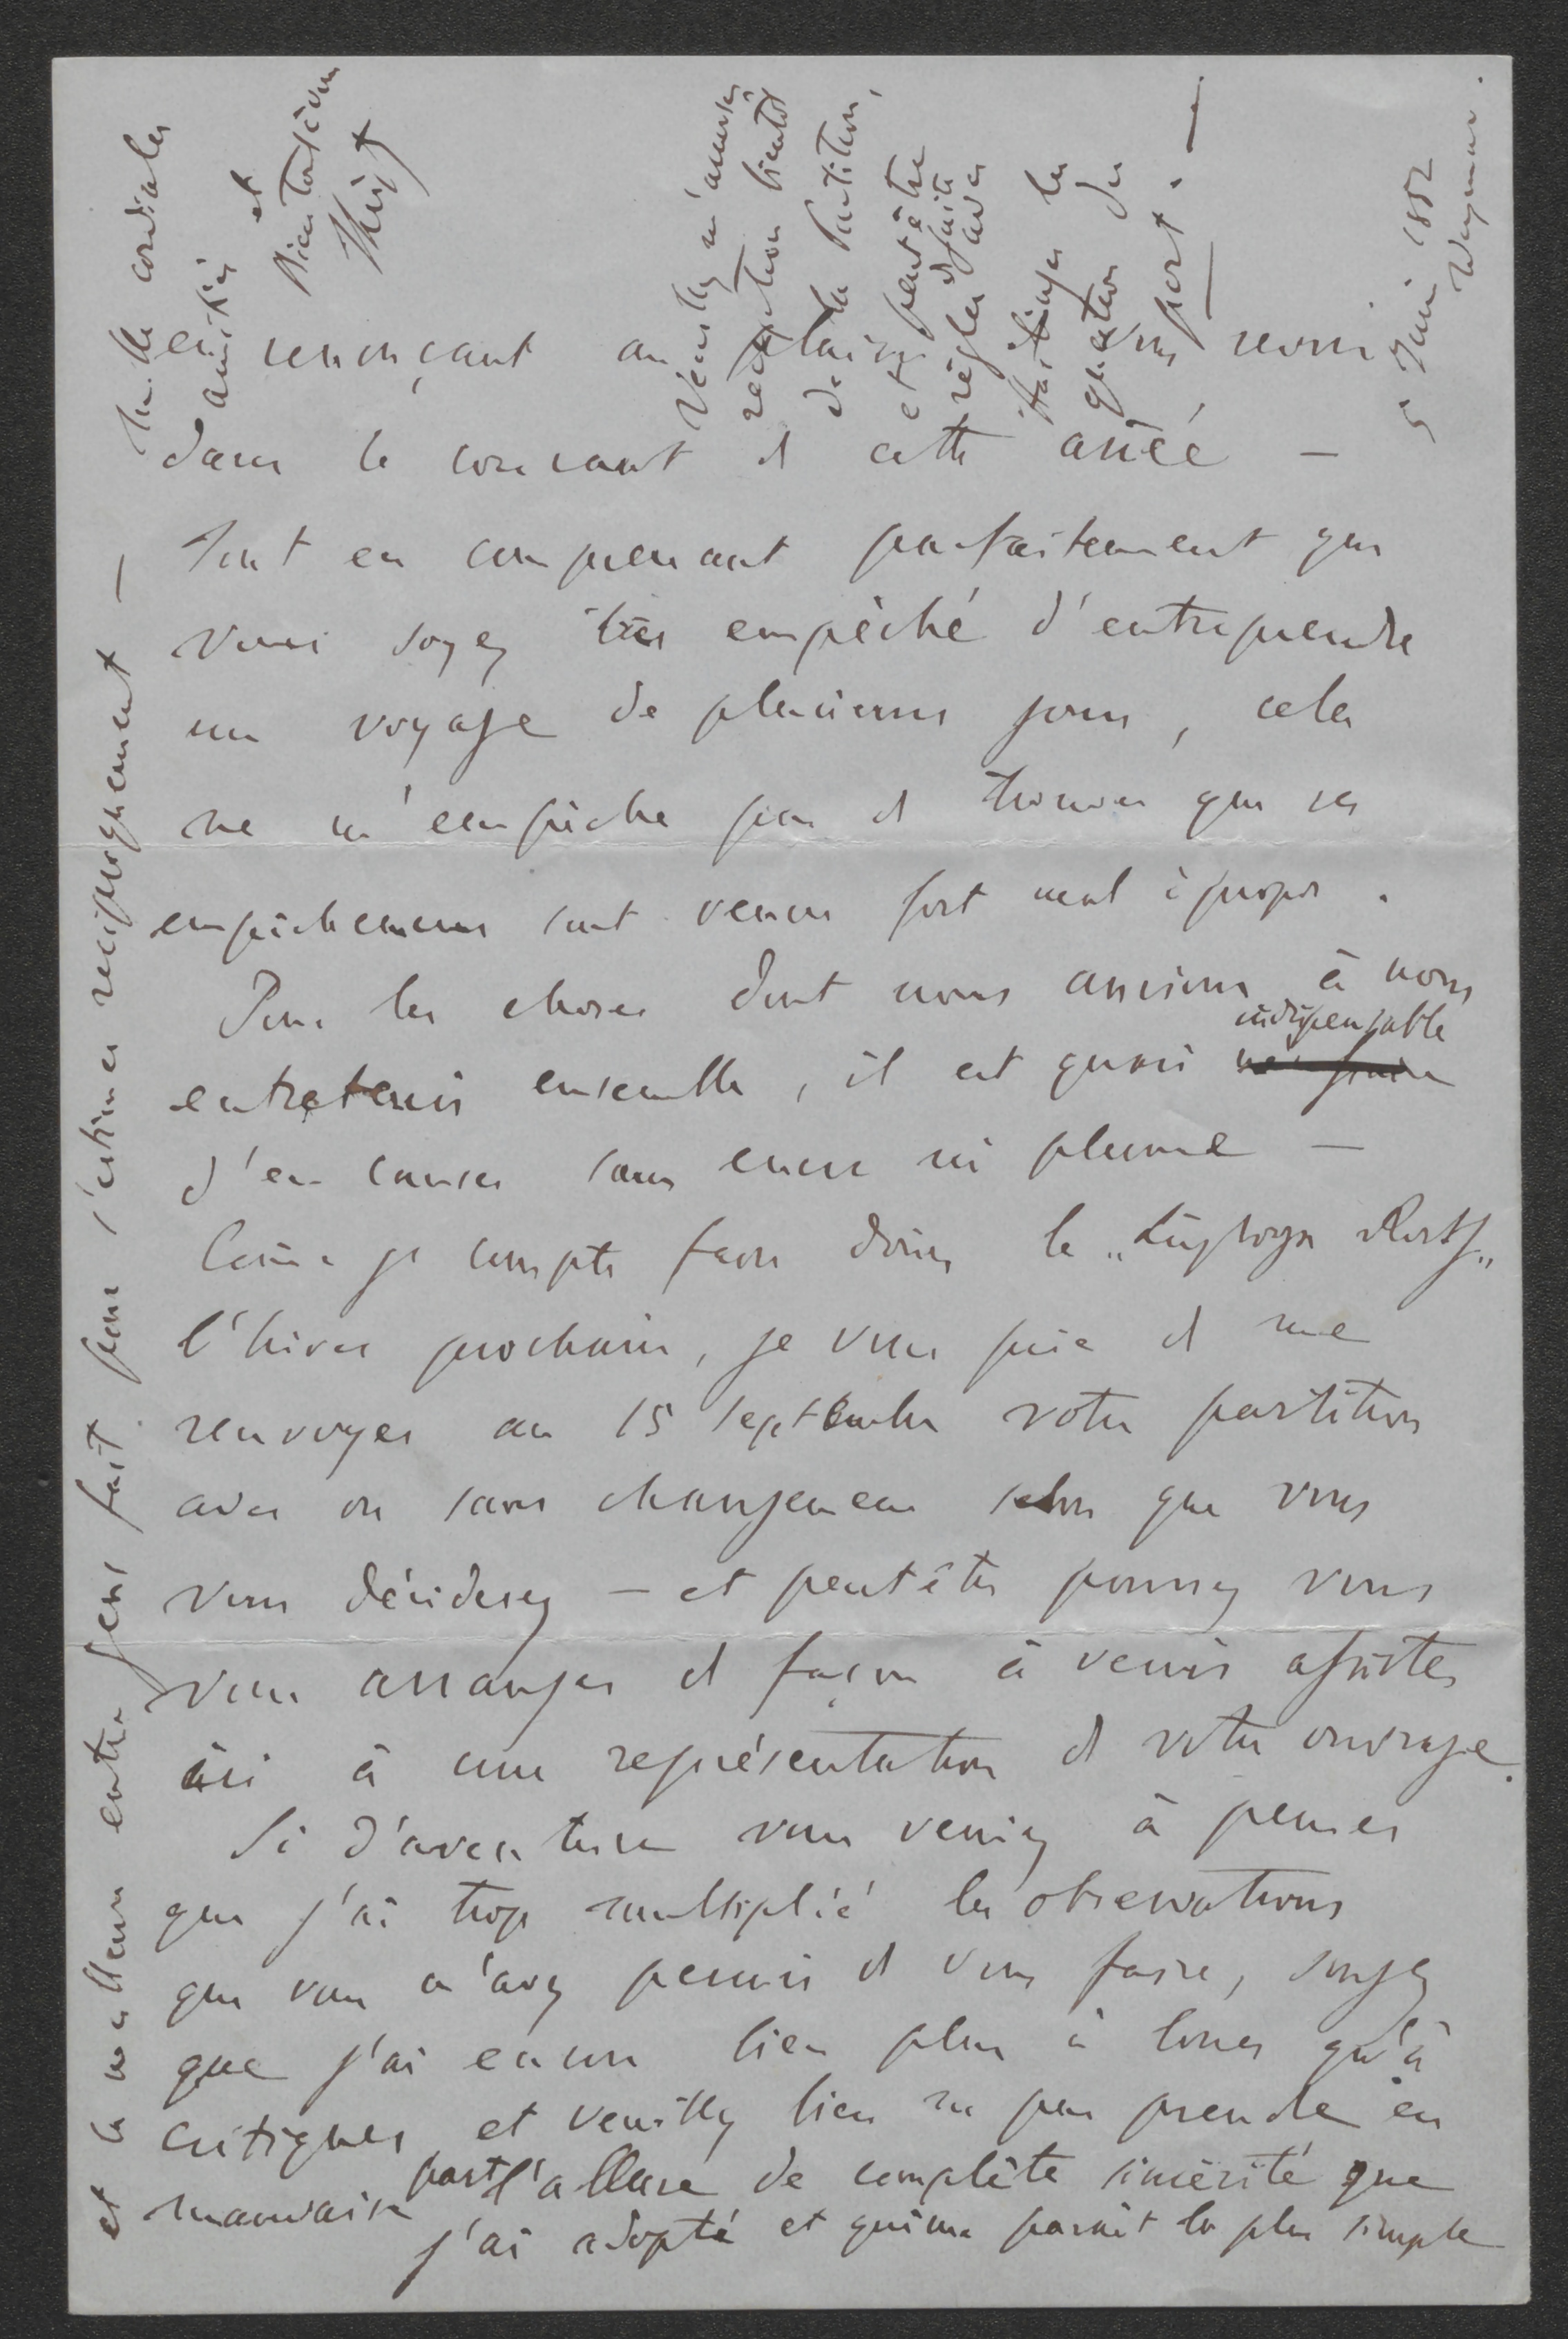 en renonçant au plaisir de vous revoir
dans le courant de cette année —
Tout en comprenant parfaitement que
vous soyez très empêché d'entreprendre
un voyage de plusieurs jours, cela
ne m'empêche pas de trouver que ces
empêchemens sont venus fort mal à propos.
Pour les choses dont nous aurions à nous
entretenir ensemble, il est quasi indispensable
d'en causer sans encre ni plume —
Coṁe je compte faire doṅer le
l'hiver prochain, je vous prie de me
renvoyer au 15 Septembre votre partition
avec ou sans changemens selon que vous
vous déciderez — et peutêtre pourrez vous
vous arranger de façon à venir assister
ici à une représentation de votre ouvrage.
Si d'aventure vous veniez à penser
que j'ai trop multiplié les observations
que vous m'avez permis de vous faire, songez
que j'ai encore bien plus à louer qu'à
critiquer, et veuillez bien ne pas prendre en
mauvaise part l'allure de complète sincérité que
j'ai adopté et qui me parait la plus simple
et la meilleure entre gens fait pour s'estimer réciproquement —
Mille cordiales
amitiés et
bien tout à vous
Liszt
5 Juin 1852
Weymar.
Veuillez m'accuser
reception bientôt
de la Partition,
et peutêtre
régler de suite avec
Härtinger la
question du
port. —